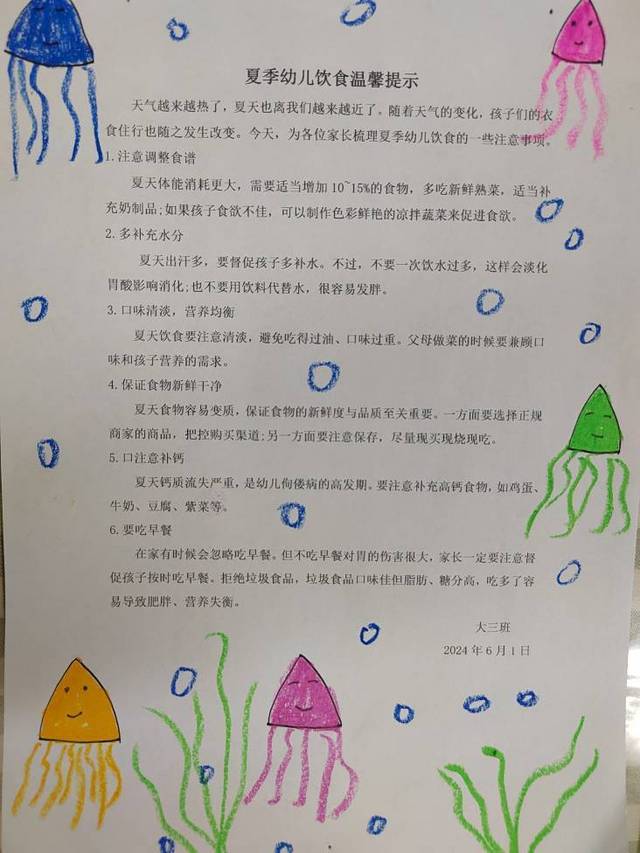 夏季幼儿饮食温馨提示
天气越来越热了，夏天也离我们越来越近了。随着天气的变化，孩子们的衣
食住行也随之发生改变。今天，为各位家长梳理夏季幼儿饮食的一些注意事项。
1.注意调整食谱
夏天体能消耗更大，需要适当增加10~15%的食物，多吃新鲜熟菜，适当补
充奶制品;如果孩子食欲不佳，可以制作色彩鲜艳的凉拌蔬菜来促进食欲。
2.多补充水分
夏天出汗多，要督促孩子多补水。不过，不要一次饮水过多，这样会淡化
胃酸影响消化;也不要用饮料代替水，很容易发胖。
3.口味清淡，营养均衡
夏天饮食要注意清淡，避免吃得过油、口味过重。父母做菜的时候要兼顾口
味和孩子营养的需求。
4.保证食物新鲜干净
夏天食物容易变质，保证食物的新鲜度与品质至关重要。一方面要选择正规
商家的商品，把控购买渠道;另一方面要注意保存，尽量现买现烧现吃。
5.口注意补钙
夏天钙质流失严重，是幼儿佝偻病的高发期。要注意补充高钙食物，如鸡蛋、
牛奶、豆腐、紫菜等。
6.要吃早餐
在家有时候会忽略吃早餐。但不吃早餐对胃的伤害很大，家长一定要注意督
促孩子按时吃早餐。拒绝垃圾食品，垃圾食品口味佳但脂肪、糖分高，吃多了容
易导致肥胖、营养失衡。
大三班
2024年6月1日